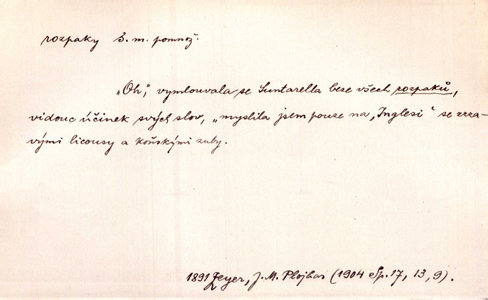 rozpaky s. m. pomnož.
„Oh“, vymlouvala se Suntarella beze všech rozpaků,
vidouc účinek svých slov, „myslila jsem pouze na „Inglesi“ se zrza-
vými licousy a koňskými zuby.
1891 Zeyer, J. M. Plojhar (1904 Sp. 17, 13, 9).